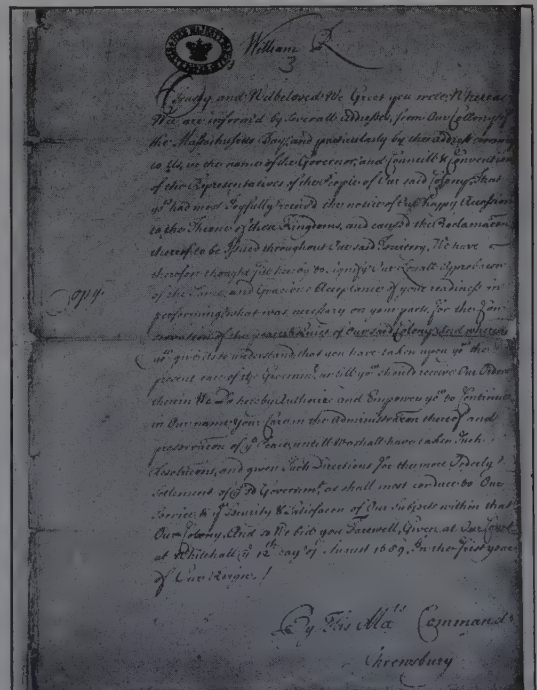 William R
3
Trusty and Welbeloved We Greet you well, Whereas
We are inform'd by severall addresses, from Our Collony of
the Massachusetts Bay, and particularly by the address
to Us, in the name of the Governor, and Councill & Convention
of the Representatives of the People of Our said Colony, that
yo.^u had most Joyfully receiv'd the notice of Our happy Accession
to the Throne of these Kingdoms, and caused the Proclamacon
thereof to be issued throughout Our said Territory, We have
therefore thought fit hereby to signify Our Royall Approbacon
of the same, and Gracious Acceptance of your readiness in
performing what was necessary on your parts, for the
of the peace of Our said Colony. And whereas
yo.^u give us to understand that you have taken upon yo.^u the
present care of the Governm.^t untill yo.^u should receive Our Orders
therein We Do hereby Authorize and Empower yo.^u to Continue
in Our name your Care in the Administracon thereof and
preservacon of y.^e Peace, untill We shall have taken Such
Resolucons, and given Such Directions for the more Orderly
Settlement of y.^e s.^d Governm.^t as shall most conduce to Our
Service & y.^e Security & Satisfacon of Our Subjects within that
Our Colony. And so We bid you Farewell, Given at Our Court
at Whitehall y.^e 12.^th day of August 1689. In the first year
of Our Reign.
Copy.
By His Ma.^ts Command
Shrewsbury